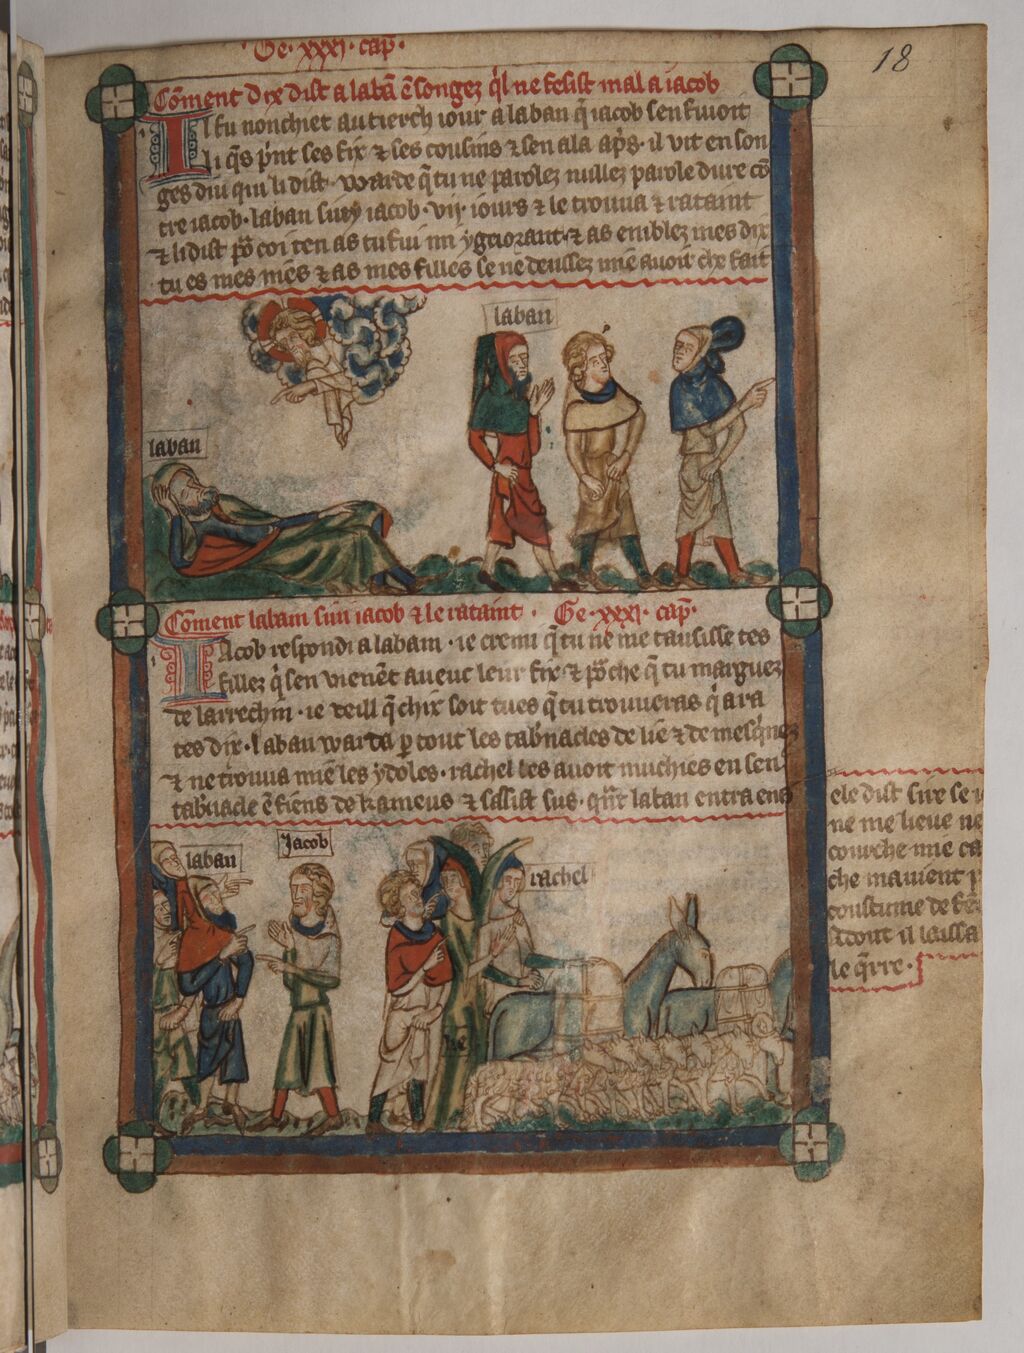 Ge · xxxj · cap̄ ·
18
Cōment dix dist a labā ē songez q̄l ne fesist mal a iacob
Il fu nonchiet au tierch iour a laban q̄ iacob sen fuioit
li q̄s p̄nt ses fix ⁊ ses cousins ⁊ sen ala ap̄s · il vit en son
ges diu qui li dist · warde q̄ tu ne parolez nullez parole dure cō
tre iacob · laban suiy iacob · vij · iours ⁊ le trouua ⁊ rataint
⁊ li dist po᷒ coi ten as tu fui mi ygnorant · ⁊ as emblez mes dix
tu es mes niés ⁊ as mes filles se ne deussez mie auoir che fait
laban
laban
Cōment labam suii iacob ⁊ le rataint · Ge · xxxj · cap̄ ·
Iacob respondi a labam · ie cremi q̄ tu ne me tausisse tes
fillez q̄ sen vienēt aueuc leur fix ⁊ po᷒che q̄ tu marguez
de larrechin · ie veill q̄ chix soit tues q̄ tu trouueras q̄ ara
tes dix · laban warda p̱ tout les tab̄nacles de lie ⁊ de mesq̄nez
⁊ ne trouua mie les ydoles · rachel les auoit muchies en sen
tab̄nacle ē fiens de kameus ⁊ sassist sus · q̄nt laban entra ens
ele dist sire se i
ne me lieue ne
courche mie ca
che mauient p̱
coustume de fē
⁊ tout il laissa
le q̄rre ·
laban
Jacob
rachel
lie